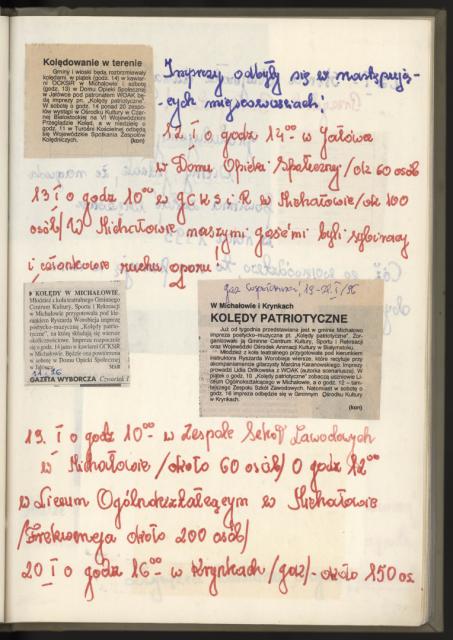 Kolędowanie w terenie
Gminy i wioski będą rozbrzmiewały
kolędami. w piątek (godz. 14) w kawiar-
ni GCKSiR w Michałowie i sobotę
(godz. 13) w Domu Opieki Społecznej
w Jałówce pod patronatem WOAK bę-
dą imprezy pn. „Kolędy patriotyczne".
W sobotę o godz. 14 ponad 20 zespo-
łów wystąpi w Ośrodku Kultury w Czar-
nej Białostockiej na VI Wojewódzkim
Przeglądzie Kolęd, a w niedzielę o
godz. 11 w Turośni Kościelnej odbędą
się Wojewódzkie Spotkania Zespołów
Kolędniczych. (kon)
Imprezy odbyły się w następują-
-cych miejscowościach:
12 I o godz 14⁰⁰ w Jałówce
w Domu Opieki Społecznej /ok 60 osób
13 I o godz 10⁰⁰ w GCKSiR w Michałowie/ok 100
osób/ W Michałowie naszymi gośćmi byli sybiracy
i członkowie ruchu oporu
KOLĘDY W MICHAŁOWIE.
Młodzież z koła teatralnego Gminnego
Centrum Kultury, Sportu i Rekreacji
w Michałowie przygotowała pod kie-
runkiem Ryszarda Worobieja imprezę
poetycko-muzyczną „Kolędy patrio-
tyczne", na którą składają się wiersze
okolicznościowe. Impreza rozpocznie
się o godz. 14 jutro w kawiarni GCKSiR
w Michałowie. Będzie ona powtórzona
w sobotę w Domu Opieki Społecznej
w Jałówce. MAR
GAZETA WYBORCZA Czwartek
gaz Współczesna, 19-21.I/96
W Michałowie i Krynkach
KOLĘDY PATRIOTYCZNE
Już od tygodnia przedstawiana jest w gminie Michałowo
impreza poetycko-muzyczna pt. „Kolędy patriotyczne". Zor-
ganizowali ją Gminne Centrum Kultury, Sportu i Rekreacji
oraz Wojewódzki Ośrodek Animacji Kultury w Białymstoku.
Młodzież z koła teatralnego przygotowała pod kierunkiem
instruktora Ryszarda Worobieja wiersze, które recytuje przy
akompaniamencie gitarzysty Marcina Karanowskiego. Imprezę
prowadzi Lidia Dritkowska z WOAK (autorka scenariusza). W
piątek o godz. 10 „Kolędy patriotyczne" zobaczą uczniowie Li-
ceum Ogólnokształcącego w Michałowie, a o godz. 12 – tam-
tejszego Zespołu Szkół Zawodowych. Natomiast w sobotę o
godz. 16 impreza odbędzie się w Gminnym Ośrodku Kultury
w Krynkach.
(kon)
19. I o godz 10⁰⁰ w Zespole Szkół Zawodowych
w Michałowie /około 60 osób/ O godz 12⁰⁰
w Liceum Ogólnokształcącym w Michałowie
/Frekwencja około 200 osób/
20 I o godz 16⁰⁰ w Krynkach /gok/- około 150 os.